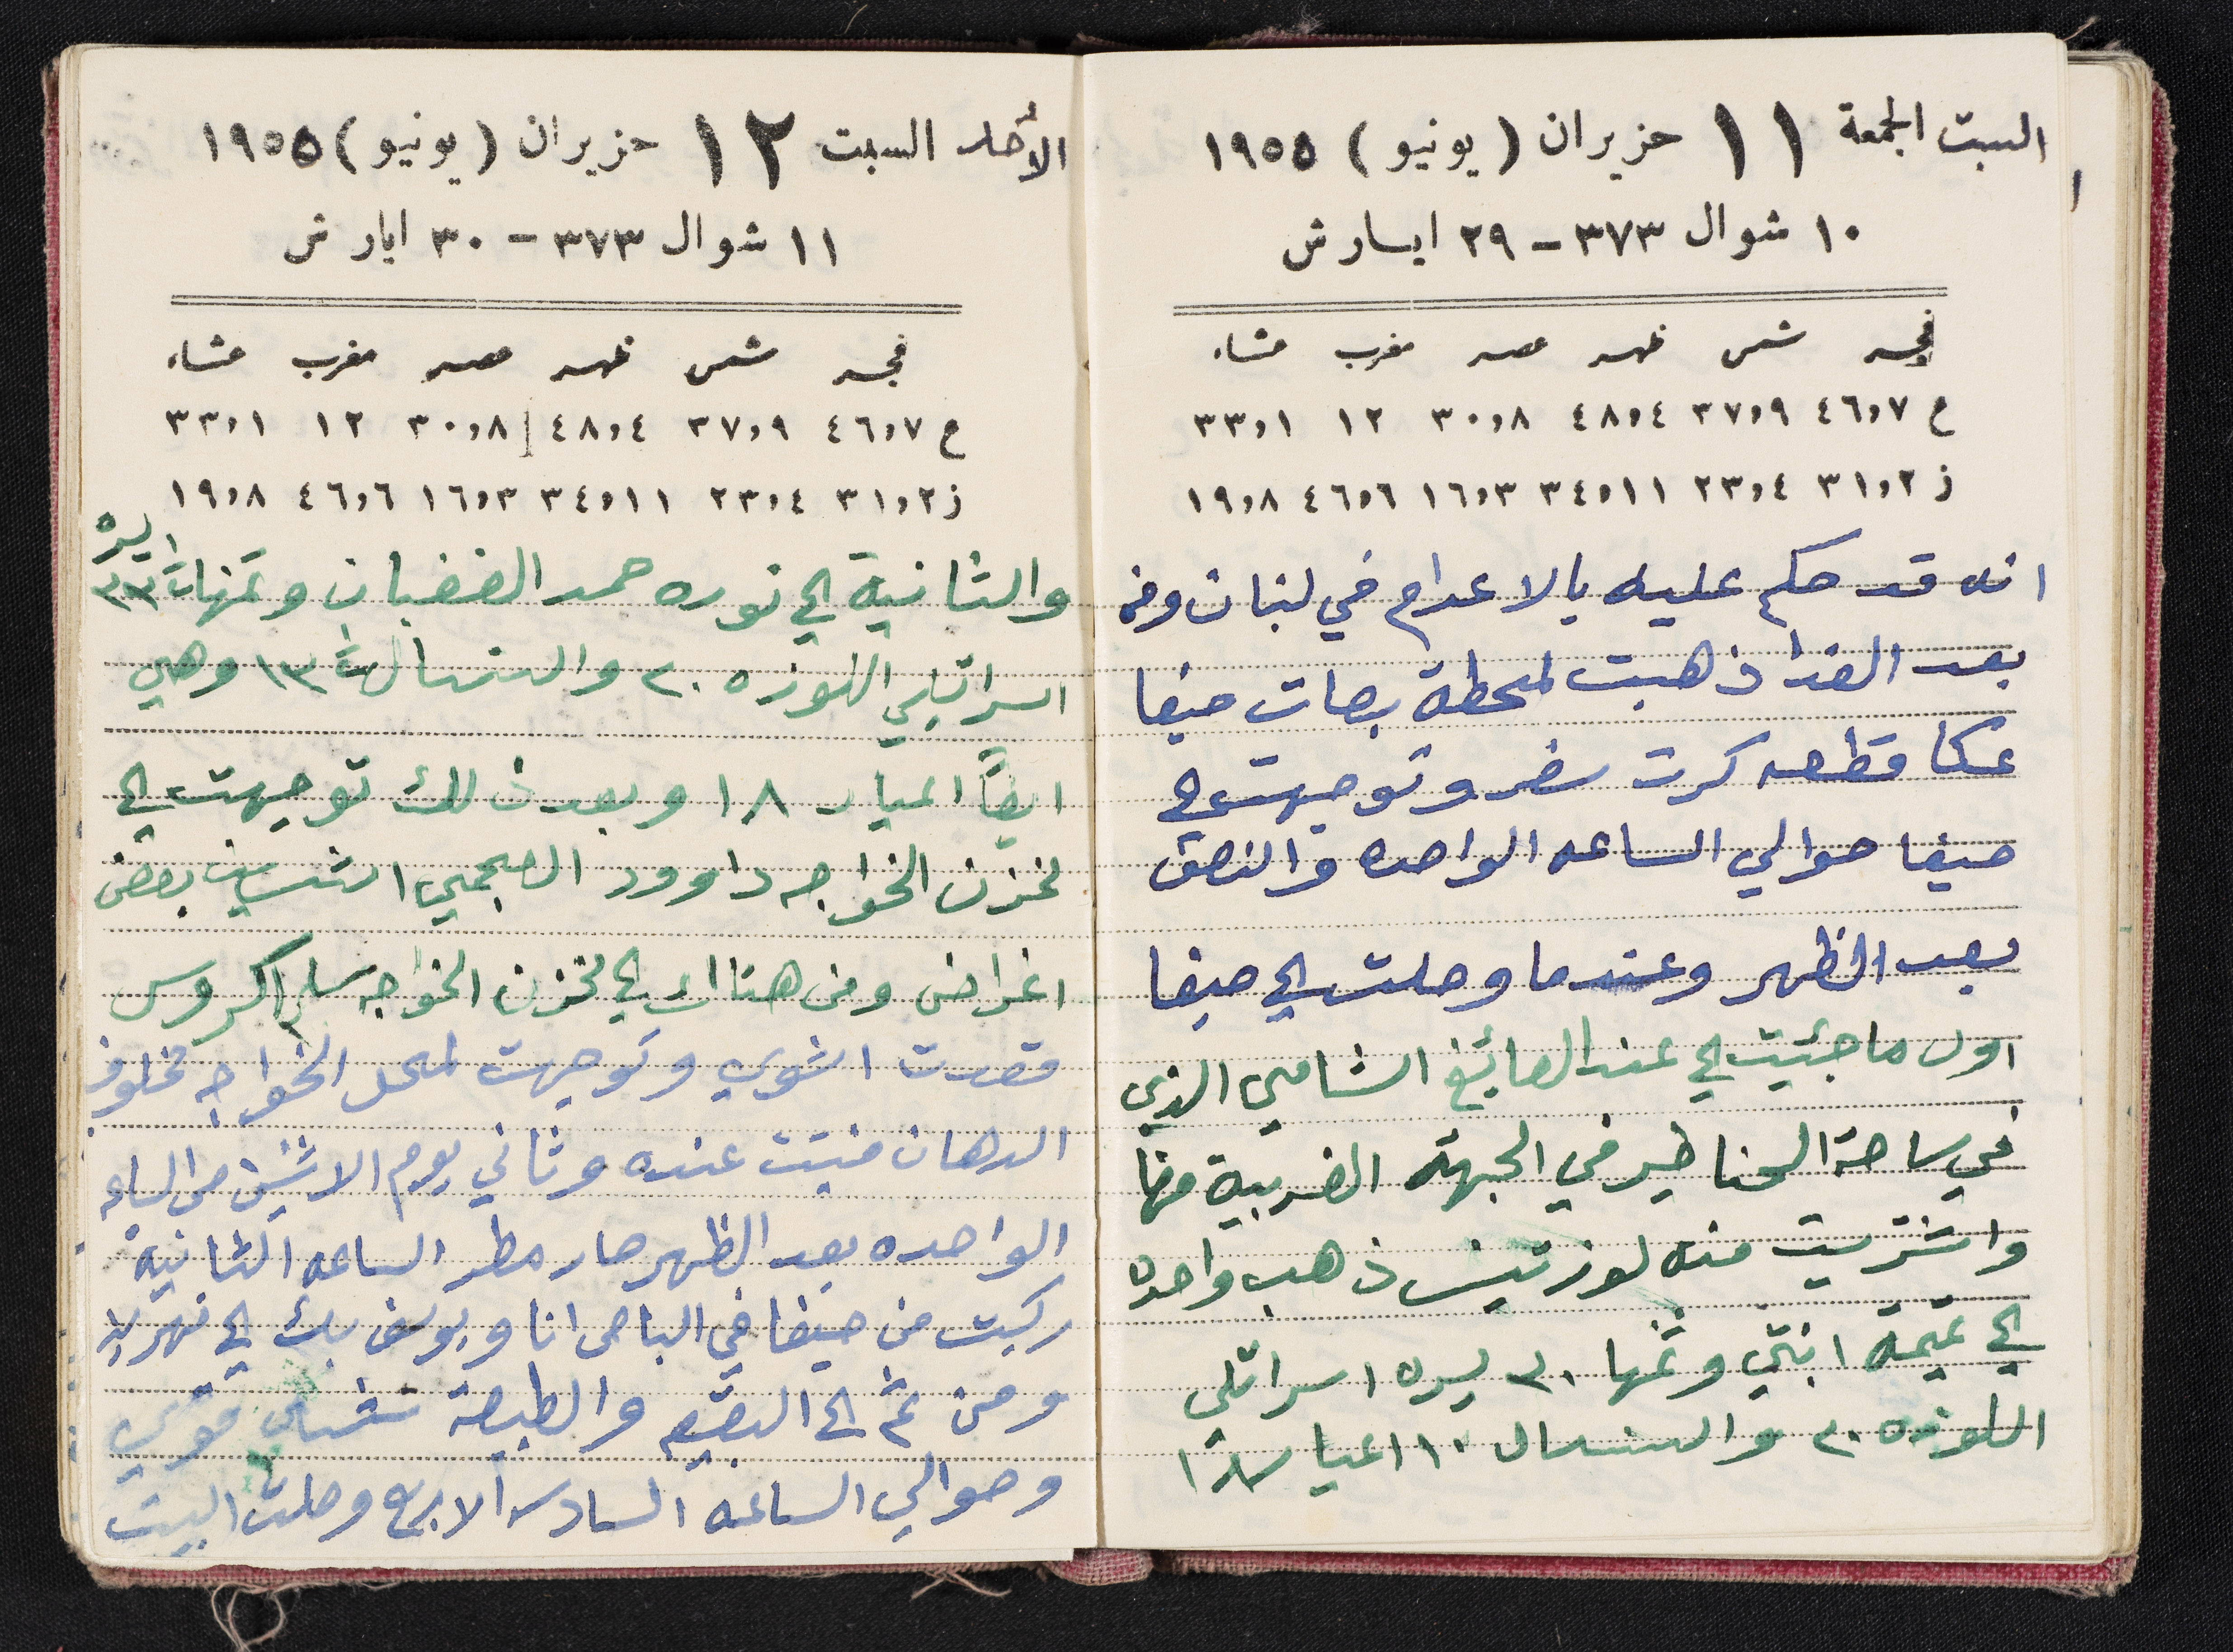 السبت الجمعة ١١ حزيران (يونيو) ١٩٥٥
١٠ شوال ٣٧٣ - ٢٩ ايار ش
فجر شمس ظهر عصر مغرب عشاء
ع ٤٦,٧ ٣٧,٩ ٤٨,٤ ٣٠,٨ ١٢ ٣٣,١
ز ٣١,٢ ٢٣,٤ ٣٤,١١ ١٦,٣ ٤٦,٦ ١٩,٨
انه قد حكم عليه بالاعدام في لبنان ومن
بعد الغدا ذهبت لمحطة بصات حيفا
عكا قطعه كرت سفر وتوجهت الى
حيفا حوالي الساعه الواحده والنصف
بعد الظهر وعندما وصلت الى حيفا
اول ما جئيت الى عند الصائغ الشامي الذي
في ساحة الحناطير في الجهة الغربية منها
واشتريت منه لوزتين ذهب واحده
الى تميمة ابنتي وثمنها ٣٠ ليره اسرائلي
اللوزه ٢٠ والسنسال ١٠ اعيار ١٨
الأحد السبت ١٢ حزيران (يونيو) ١٩٥٥
١١ شوال ٣٧٣ - ٣٠ ايار ش
فجر شمس ظهر عصر مغرب عشاء
ع ٤٦,٧ ٣٧,٩ ٤٨,٤ ٣٠,٨ ١٢ ٣٣,١
ز ٣١,٢ ٢٣,٤ ٣٤,١١ ١٦,٣ ٤٦,٦ ١٩,٨
والثانية الى نوره حمد الغضبان وثمنها ٣٣ ليره
اسرائيلي اللوزه ٢٠ والسنسال ١٣ وهي
ايضاً اعيار ١٨ وبعد ذلك توجهت الى
مخزن الخواجه داوود العجمي اشتريت بعض
اغراض ومن هناك الى مخزن الخواجه سليم اكروس
قعدت اشوي وتوجهت لمحل الخواجه مخلوف
الدهان فبتت عنده وثاني يوم الاثنين من الساعه
الواحده بعد الظهر صار مطر الساعه الثانية
ركبت من حيفا في الباص انا ويوسف بك الى نهريا
ومن ثم الى البقيع والطبيعة شتاء قوي
وحوالي الساعه السادسه الا ربع وصلت البيت